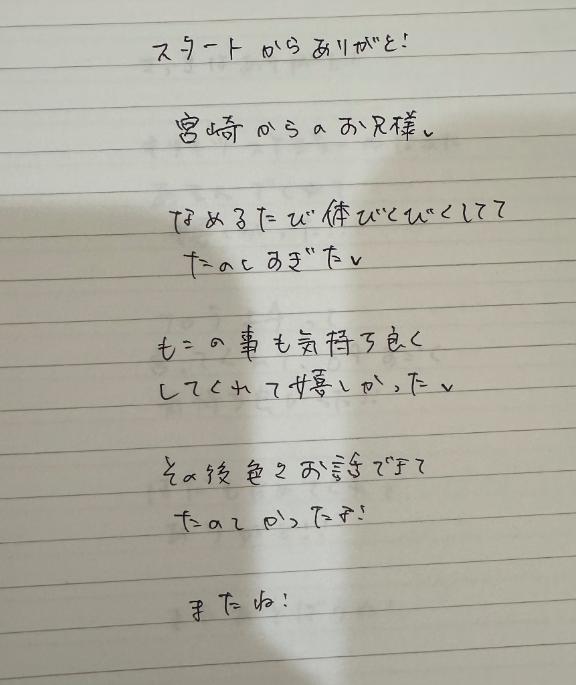 スタートからありがと!
宮崎からのお兄様、
なめるたび体びくびくしてて
たのしすぎた、
もこの事も気持ち良く
してくれて嬉しかった、
その後色々お話できて
たのしかったよ!
またね!